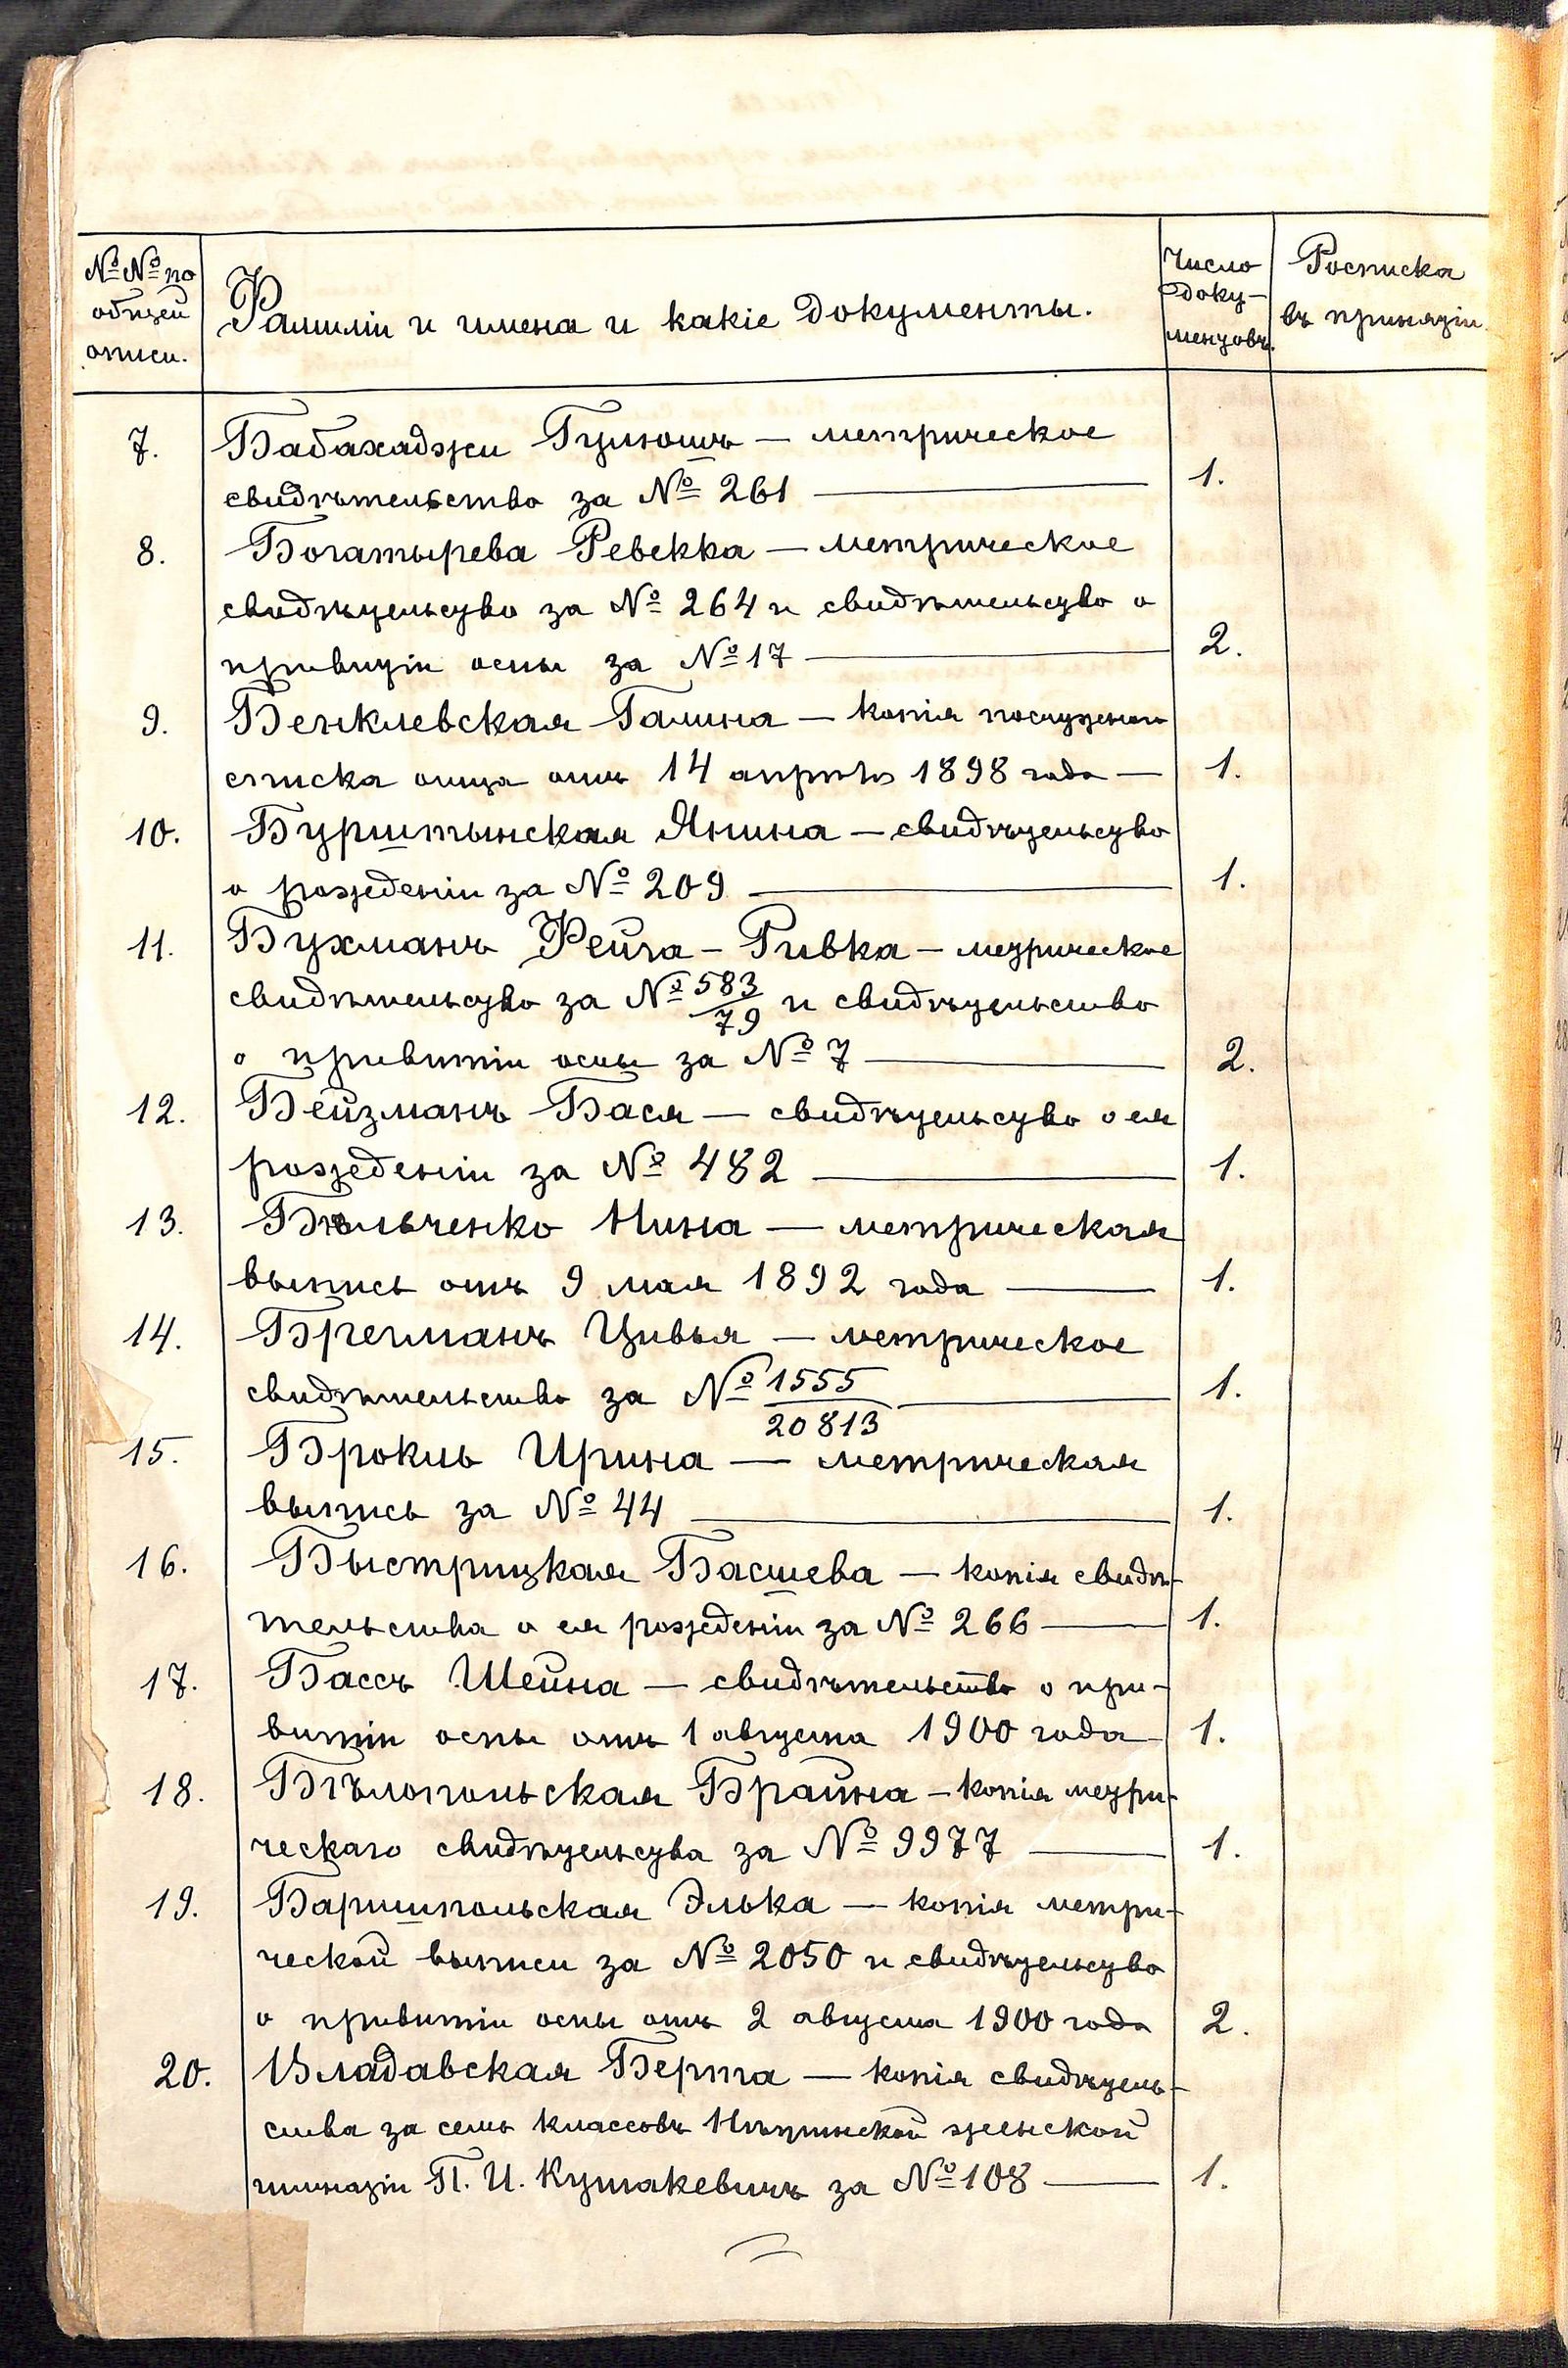 №№ по
общей
описи.
Фамиліи и имена и какіе документы.
Число
доку-
ментовъ.
Росписка
въ принятіи.
7. Бабахаджи Гулюшъ — метрическое
свидѣтельство за № 261 — 1.
8. Богатырева Ревекка — метрическое
свидѣтельство за № 264 и свидѣтельство о
привитіи оспы за № 17 — 2.
9. Бенклевская Галина — копія послужнаго
списка отца отъ 14 апрѣля 1898 года — 1.
10. Бурштынская Янина — свидѣтельство
о рожденіи за № 209 — 1.
11. Бухманъ Фейга-Ривка — метрическое
свидѣтельство за № 583/79 и свидѣтельство
о привитіи оспы за № 7 — 2.
12. Бейзманъ Бася — свидѣтельство о ея
рожденіи за № 482 — 1.
13. Бѣльченко Нина — метрическая
выпись отъ 9 мая 1892 года — 1.
14. Брегманъ Цивья — метрическое
свидѣтельство за № 1555/20813 — 1.
15. Брокль Ирина — метрическая
выпись за № 44 — 1.
16. Быстрицкая Басшева — копія свидѣ-
тельства о ея рожденіи за № 266 — 1.
17. Бассъ Шейна — свидѣтельство о при-
витіи оспы отъ 1 августа 1900 года — 1.
18. Бѣлопольская Брайна — копія метри-
ческаго свидѣтельства за № 9977 — 1.
19. Баришпольская Элька — копія метри-
ческой выписи за № 2050 и свидѣтельство
о привитіи оспы отъ 2 августа 1900 года 2.
20. Владавская Берта — копія свидѣтель-
ства за семь классовъ женской
гимназіи П. И. Кушакевичъ за № 108 — 1.